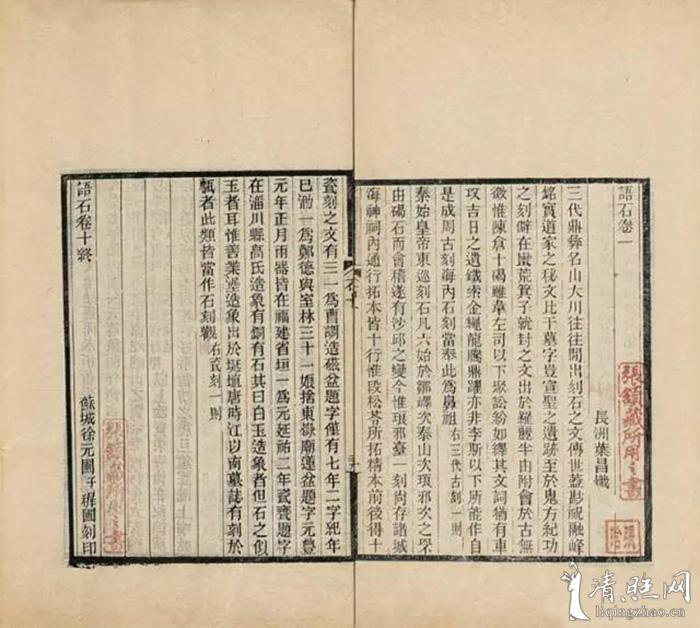 語石卷一
長洲葉昌熾
三代鼎彝名山大川往往間出刻石之文傳世蓋尟祝融峰
銘實道家之秘文比干墓字豈宣聖之遺跡至於鬼方紀功
之刻僻在蠻荒箕子就封之文出於羅麗半由附會於古無
徵惟陳倉十碣雖韋左司以下聚訟紛如繹其文詞猶有車
攻吉日之遺鐵索金繩龍騰鼎躍亦非李斯以下所能作自
是成周古刻海內石刻當奉此爲鼻祖 右三代古刻一則
秦始皇帝東巡刻石凡六始於鄒嶧次泰山次琅邪次之罘
由碣石而會稽遂有沙邱之變今惟琅邪臺一刻尚存諸城
海神祠內通行拓本皆十行惟段松苓所拓精本前後得十
瓷刻之文有三一爲曹調造磁盆題字僅有七年二字紀年
已泐一爲鄭德與室林三十一娘捨東嶽廟蓮盆題字元豐
元年正月兩器皆在福建省垣一爲元延祐二年瓷甕題字
在淄川縣高氏造象有銅有石其曰白玉造象者但石之似
玉者耳惟善業埿造象出於埏埴唐時江以南墓誌有刻於
甎者此類皆當作石刻觀 右瓷刻一則
語石卷十終
蘇城徐元圃子稺圃刻印
藏所用之書
藏所用之書
清旺网
liqingzhou.cn